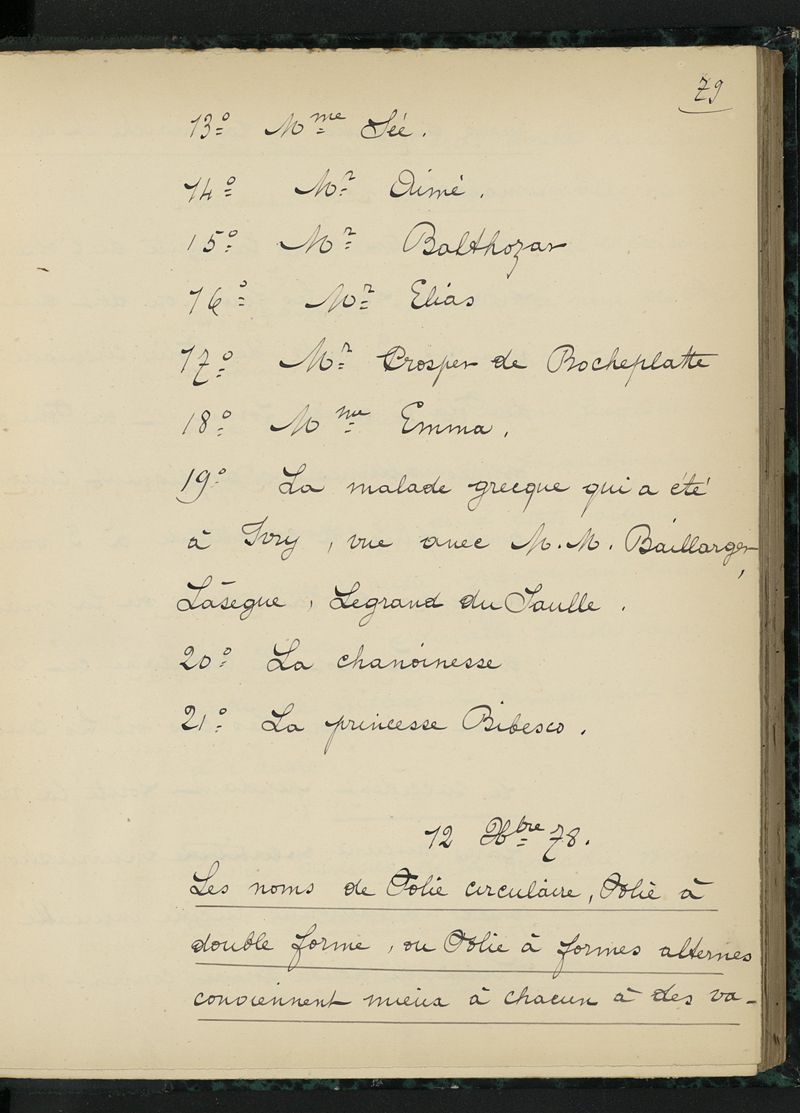 79
13° Mme Sée.
14° Mr Aimé.
15° Mr Balthozar
16° Mr Elias
17° Mr Prosper de Rocheplatte
18° Mme Emma.
19° La malade grecque qui a été
à Ivry, vue avec M.M. Baillarger,
Lasègue, Legrand du Saulle.
20° La chanoinesse
21° La princesse Bibesco.
12 Xbre 78.
Les noms de Folie circulaire, Folie à
double forme, ou Folie à formes alternes
conviennent mieux à chacun à des va-